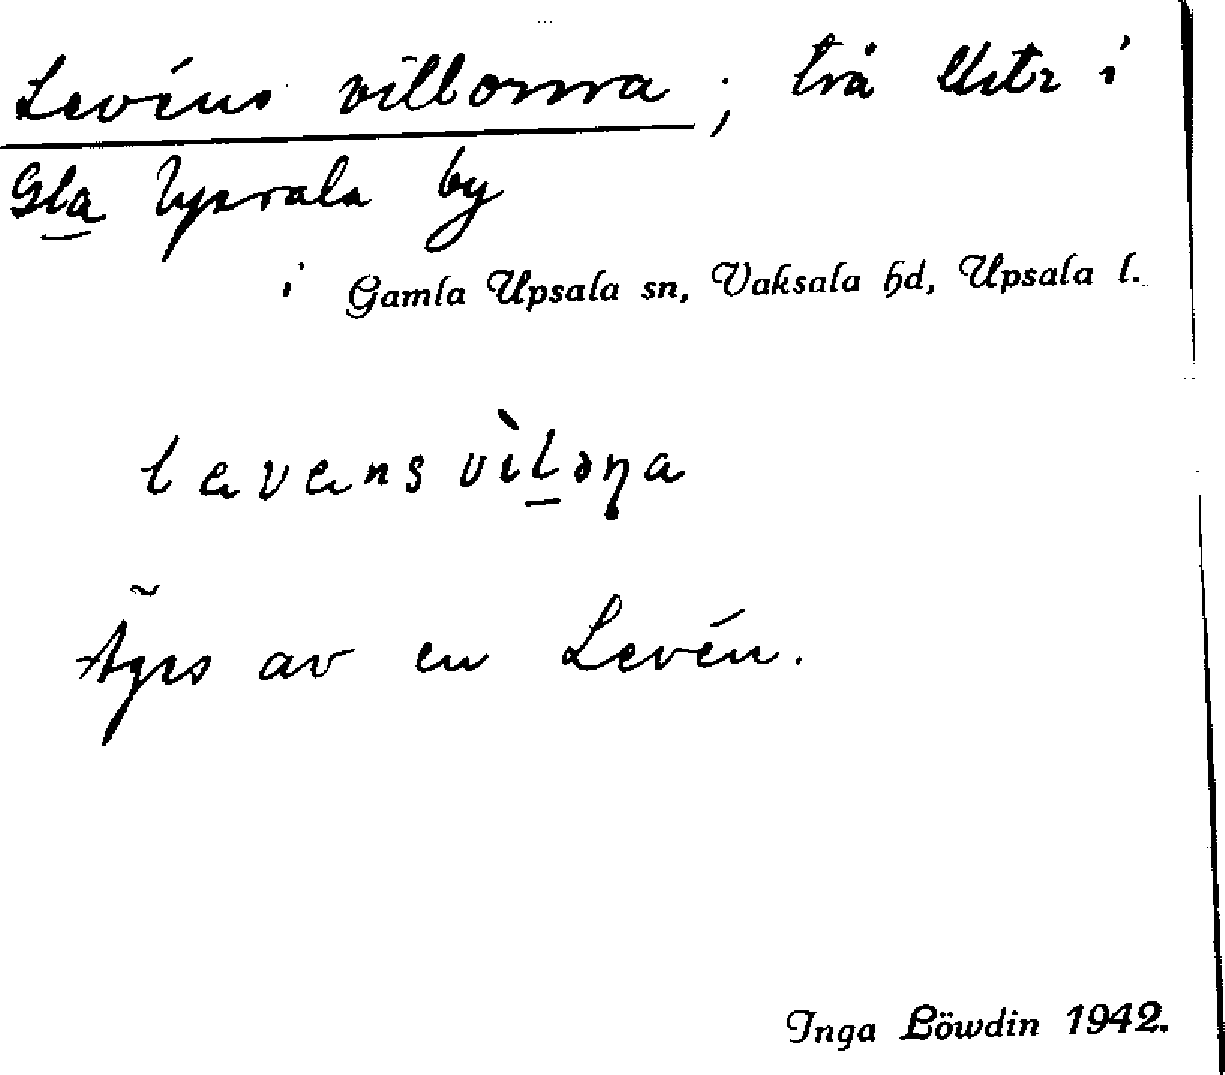 Levéns villorna ; två lhtr i
Gla Upsala by
i Gamla Upsala sn, Vaksala hd, Upsala l.
levens vìlǝṇa
Äges av en Levén.
Inga Löwdin 1942.